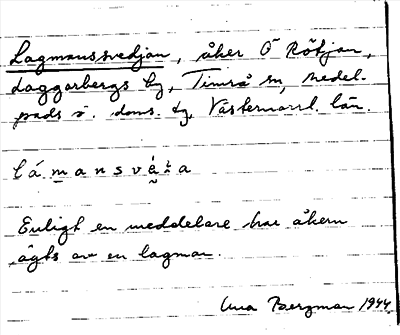 Lagmanssvedjan, åker Ö Rötjan,
Laggarbergs by, Timrå sn, Medel-
pads ö. doms. tg, Västernorrl. län.
lámansvè̯ꞎa
Enligt en meddelare har åkern
ägts av en lagman.
Una Bergman 1944.